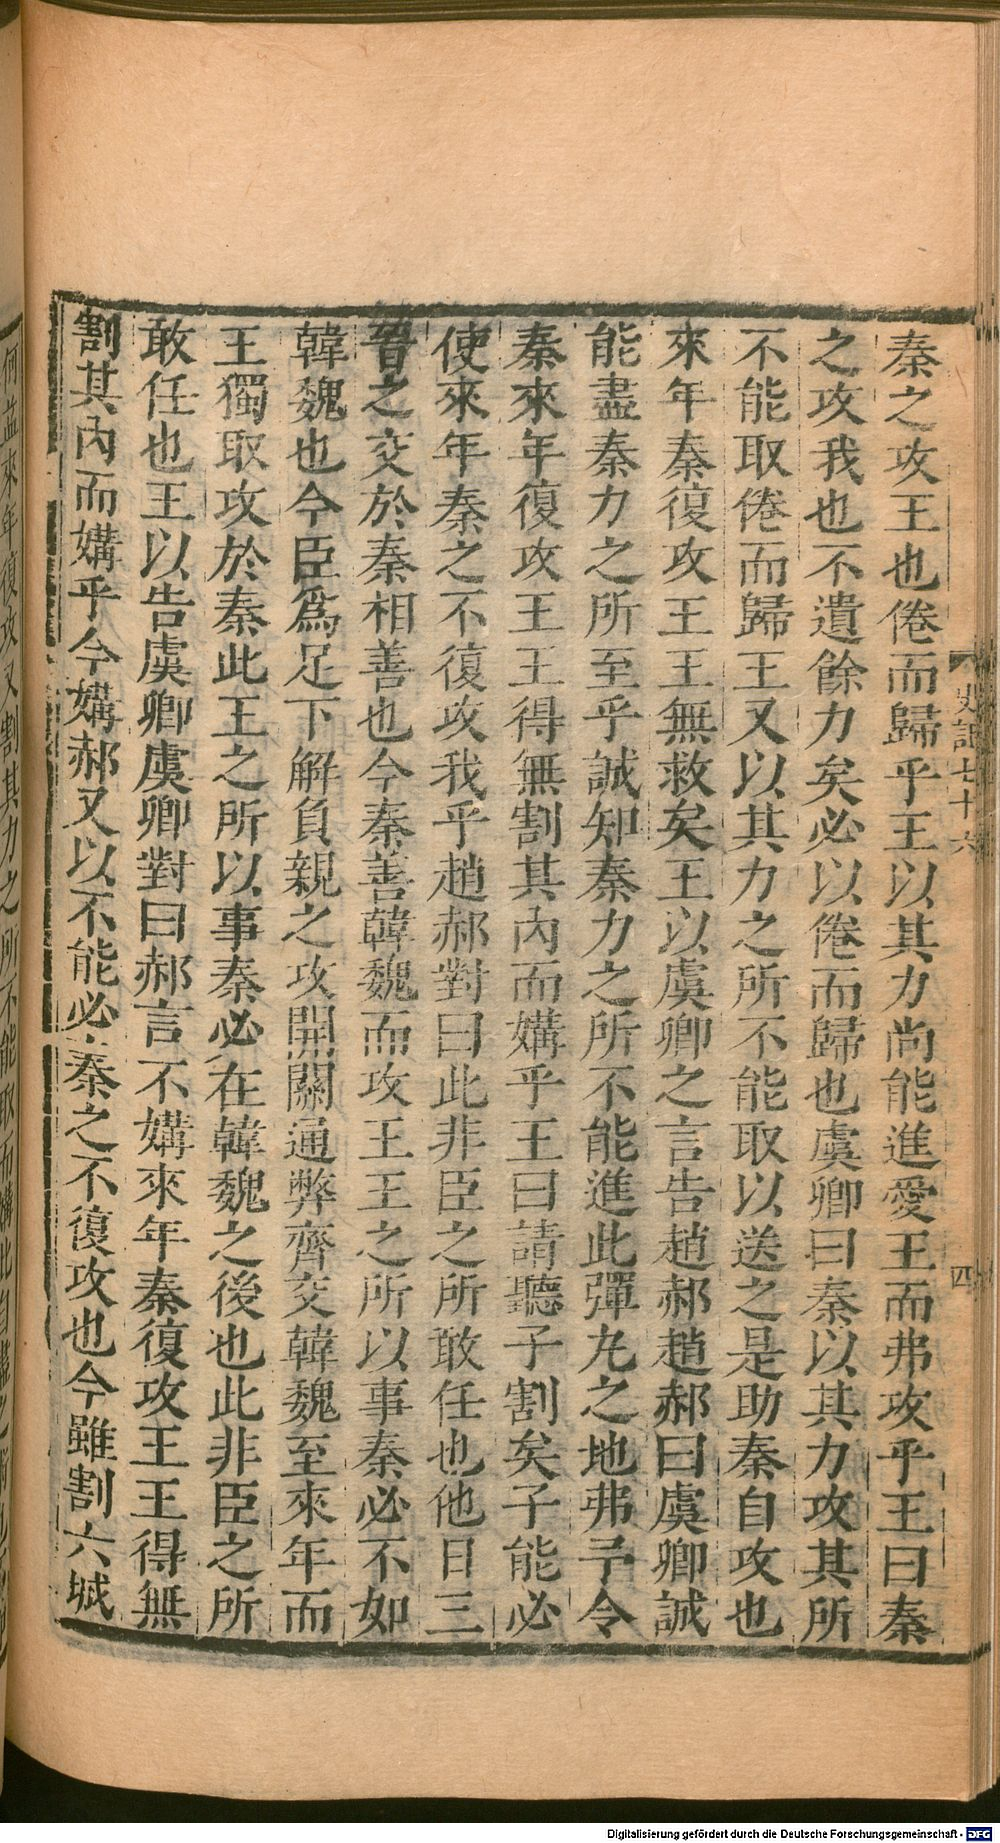 史記七十六
四
秦之攻王也倦而歸乎王以其力尚能進愛王而弗攻乎王曰秦
之攻我也不遺餘力矣必以倦而歸也虞卿曰秦以其力攻其所
不能取倦而歸王又以其力之所不能取以送之是助秦自攻也
來年秦復攻王王無救矣王以虞卿之言告趙郝趙郝曰虞卿誠
能盡秦力之所至乎誠知秦力之所不能進此彈丸之地弗予令
秦來年復攻王王得無割其內而媾乎王曰請聽子割矣子能必
使來年秦之不復攻我乎趙郝對曰此非臣之所敢任也他日三
晉之交於秦相善也今秦善韓魏而攻王王之所以事秦必不如
韓魏也今臣爲足下解負親之攻開關通弊齊交韓魏至來年而
王獨取攻於秦此王之所以事秦必在韓魏之後也此非臣之所
敢任也王以告虞卿虞卿對曰郝言不媾來年秦復攻王王得無
割其內而媾乎今媾郝又以不能必秦之不復攻也今雖割六城
何益來年復攻又割其力之所不能取而媾此自盡之術也
Digitalisierung gefördert durch die Deutsche Forschungsgemeinschaft - DFG